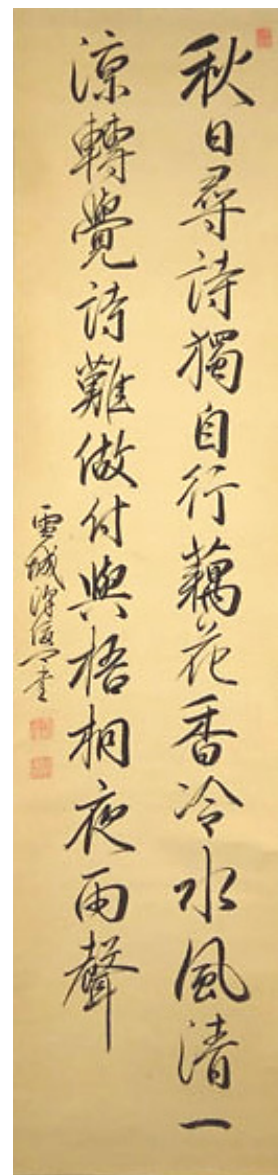 秋日尋詩獨自行藕花香冷水風清一
涼轉覺詩難做付與梧桐夜雨聲
雪城澤俊卿書